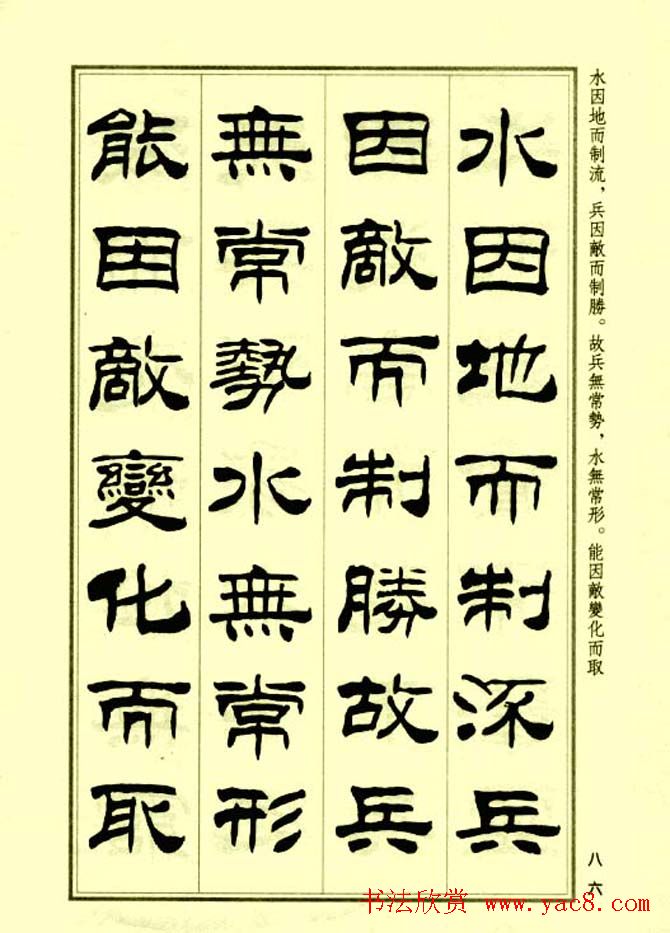 水因地而制流，兵因敵而制勝。故兵無常勢，水無常形。能因敵變化而取
水因地而制流兵
因敵而制勝故兵
無常勢水無常形
能因敵變化而取
八六
书法欣赏 www.yac8.com